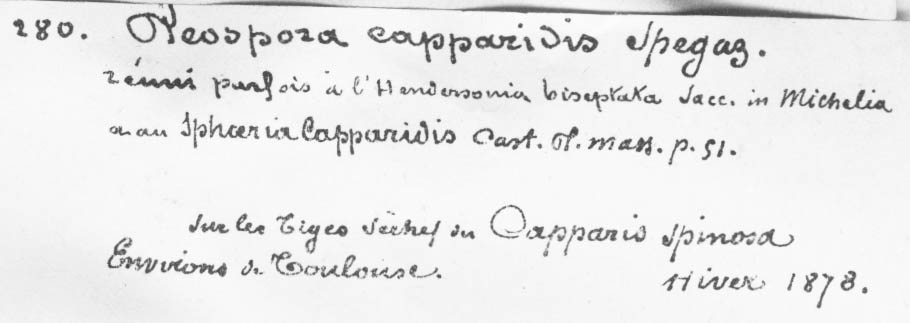 280. Pleospora capparidis Spegaz.
réuni parfois à l'Hendersonia biseptata Sacc. in Michelia
et au Sphæria Capparidis Cast. Pl. mars. p. 51.
sur les tiges sèches du Capparis spinosa
Environs de Toulouse. Hiver 1878.